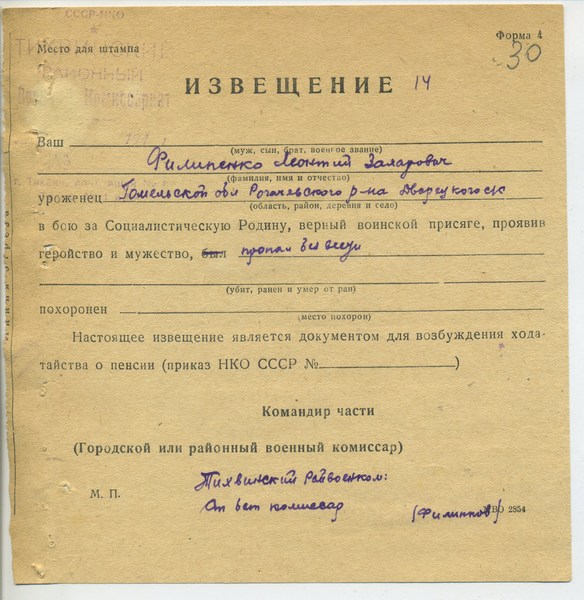 СССР-НКО
ТИХВИНСКИЙ
РАЙОННЫЙ
Военный Комиссариат
Форма 4
Место для штампа
30
ИЗВЕЩЕНИЕ 14
Ваш
(муж, сын, брат, военное звание)
Филипенко Леонтий Заларович
(фамилия, имя и отчество)
уроженец Гомельской обл Рогачевского р-на Дворецкого с/с
(область, район, деревня и село)
в бою за Социалистическую Родину, верный воинской присяге, проявив
геройство и мужество, был пропал без вести
(убит, ранен и умер от ран)
похоронен
(место похорон)
Настоящее извещение является документом для возбуждения хода-
тайства о пенсии (приказ НКО СССР №)
Командир части
(Городской или районный военный комиссар)
Тихвинский Райвоенком:
М. П.
Ст бат комиссар
(Филиппов)
ВО 2354